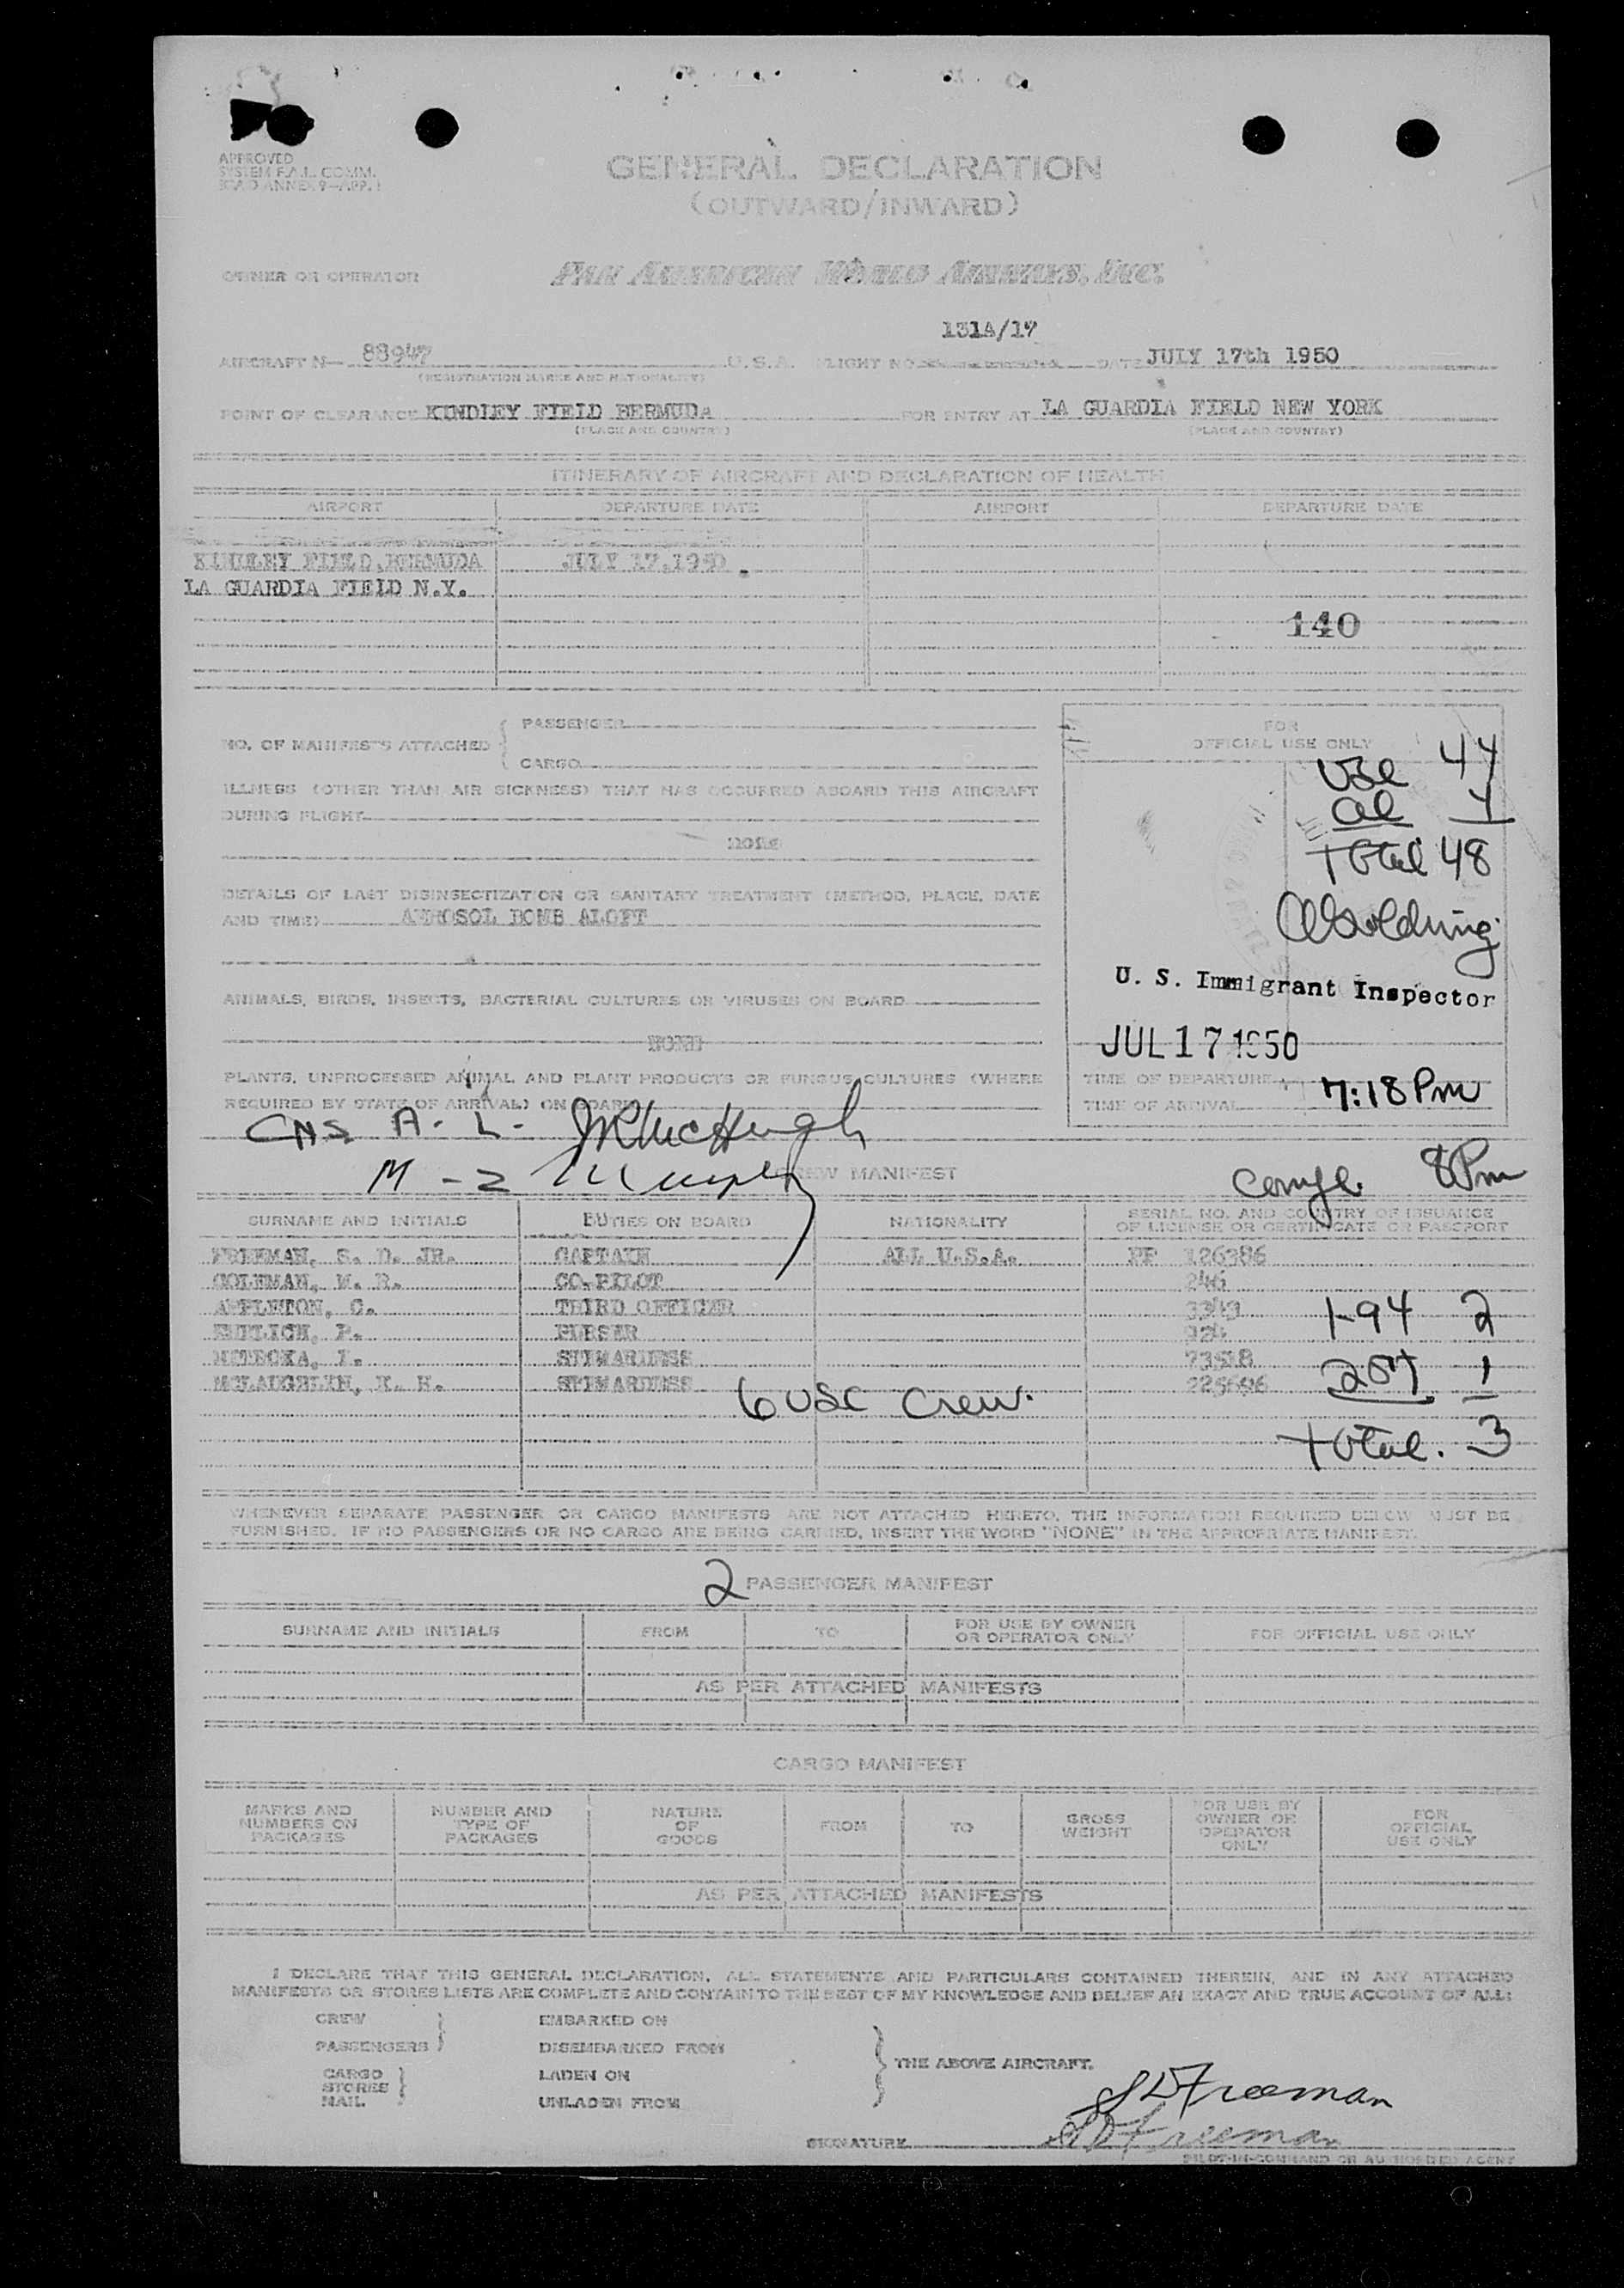 APPROVED
SYSTEM F.A.L. COMM.
ICAO ANNEX 9—APP. 1
GENERAL DECLARATION
(OUTWARD/INWARD)
OWNER OR OPERATOR PAN AMERICAN WORLD AIRWAYS, INC.
131A/17
AIRCRAFT N— 88947 U.S.A. FLIGHT NO. DATE JULY 17th 1950
(REGISTRATION MARKS AND NATIONALITY)
POINT OF CLEARANCE KINDLEY FIELD BERMUDA FOR ENTRY AT LA GUARDIA FIELD NEW YORK
(PLACE AND COUNTRY) (PLACE AND COUNTRY)
ITINERARY OF AIRCRAFT AND DECLARATION OF HEALTH
AIRPORT DEPARTURE DATE AIRPORT DEPARTURE DATE
KINDLEY FIELD, BERMUDA JULY 17, 1950
LA GUARDIA FIELD N.Y.
140
NO. OF MANIFESTS ATTACHED { PASSENGER
CARGO
FOR
OFFICIAL USE ONLY
USC 44
al 4
Total 48
U. S. Immigrant Inspector
JUL 17 1950
TIME OF DEPARTURE
TIME OF ARRIVAL 7:18 Pm
ILLNESS (OTHER THAN AIR SICKNESS) THAT HAS OCCURRED ABOARD THIS AIRCRAFT
DURING FLIGHT
NONE
DETAILS OF LAST DISINSECTIZATION OR SANITARY TREATMENT (METHOD, PLACE, DATE
AND TIME) AEROSOL BOMB ALOFT
ANIMALS, BIRDS, INSECTS, BACTERIAL CULTURES OR VIRUSES ON BOARD
NONE
PLANTS, UNPROCESSED ANIMAL AND PLANT PRODUCTS OR FUNGUS CULTURES (WHERE
REQUIRED BY STATE OF ARRIVAL) ON BOARD
A. L. JR McHugh
M - 2
CREW MANIFEST
Compl. 8 Pm
SURNAME AND INITIALS DUTIES ON BOARD NATIONALITY SERIAL NO. AND COUNTRY OF ISSUANCE
OF LICENSE OR CERTIFICATE OR PASSPORT
FREEMAN, S. D. JR. CAPTAIN ALL U.S.A. PP 126386
COLEMAN, W. R. CO-PILOT 246
APPLETON, C. THIRD OFFICER 1-94 2
P. PURSER
I. STEWARDESS 257 1
MCLAUGHLIN, K. H. STEWARDESS
6 USC Crew.
Total. 3
WHENEVER SEPARATE PASSENGER OR CARGO MANIFESTS ARE NOT ATTACHED HERETO, THE INFORMATION REQUIRED BELOW MUST BE
FURNISHED. IF NO PASSENGERS OR NO CARGO ARE BEING CARRIED, INSERT THE WORD "NONE" IN THE APPROPRIATE MANIFEST.
2 PASSENGER MANIFEST
SURNAME AND INITIALS FROM TO FOR USE BY OWNER
OR OPERATOR ONLY FOR OFFICIAL USE ONLY
AS PER ATTACHED MANIFESTS
CARGO MANIFEST
MARKS AND
NUMBERS ON
PACKAGES NUMBER AND
TYPE OF
PACKAGES NATURE
OF
GOODS FROM TO GROSS
WEIGHT FOR USE BY
OWNER OR
OPERATOR
ONLY FOR
OFFICIAL
USE ONLY
AS PER ATTACHED MANIFESTS
I DECLARE THAT THIS GENERAL DECLARATION, ALL STATEMENTS AND PARTICULARS CONTAINED THEREIN, AND IN ANY ATTACHED
MANIFESTS OR STORES LISTS ARE COMPLETE AND CONTAIN TO THE BEST OF MY KNOWLEDGE AND BELIEF AN EXACT AND TRUE ACCOUNT OF ALL:
CREW EMBARKED ON
PASSENGERS DISEMBARKED FROM
THE ABOVE AIRCRAFT.
CARGO LADEN ON
STORES
MAIL UNLADEN FROM
S D Freeman
SIGNATURE S D Freeman
PILOT-IN-COMMAND OR AUTHORIZED AGENT